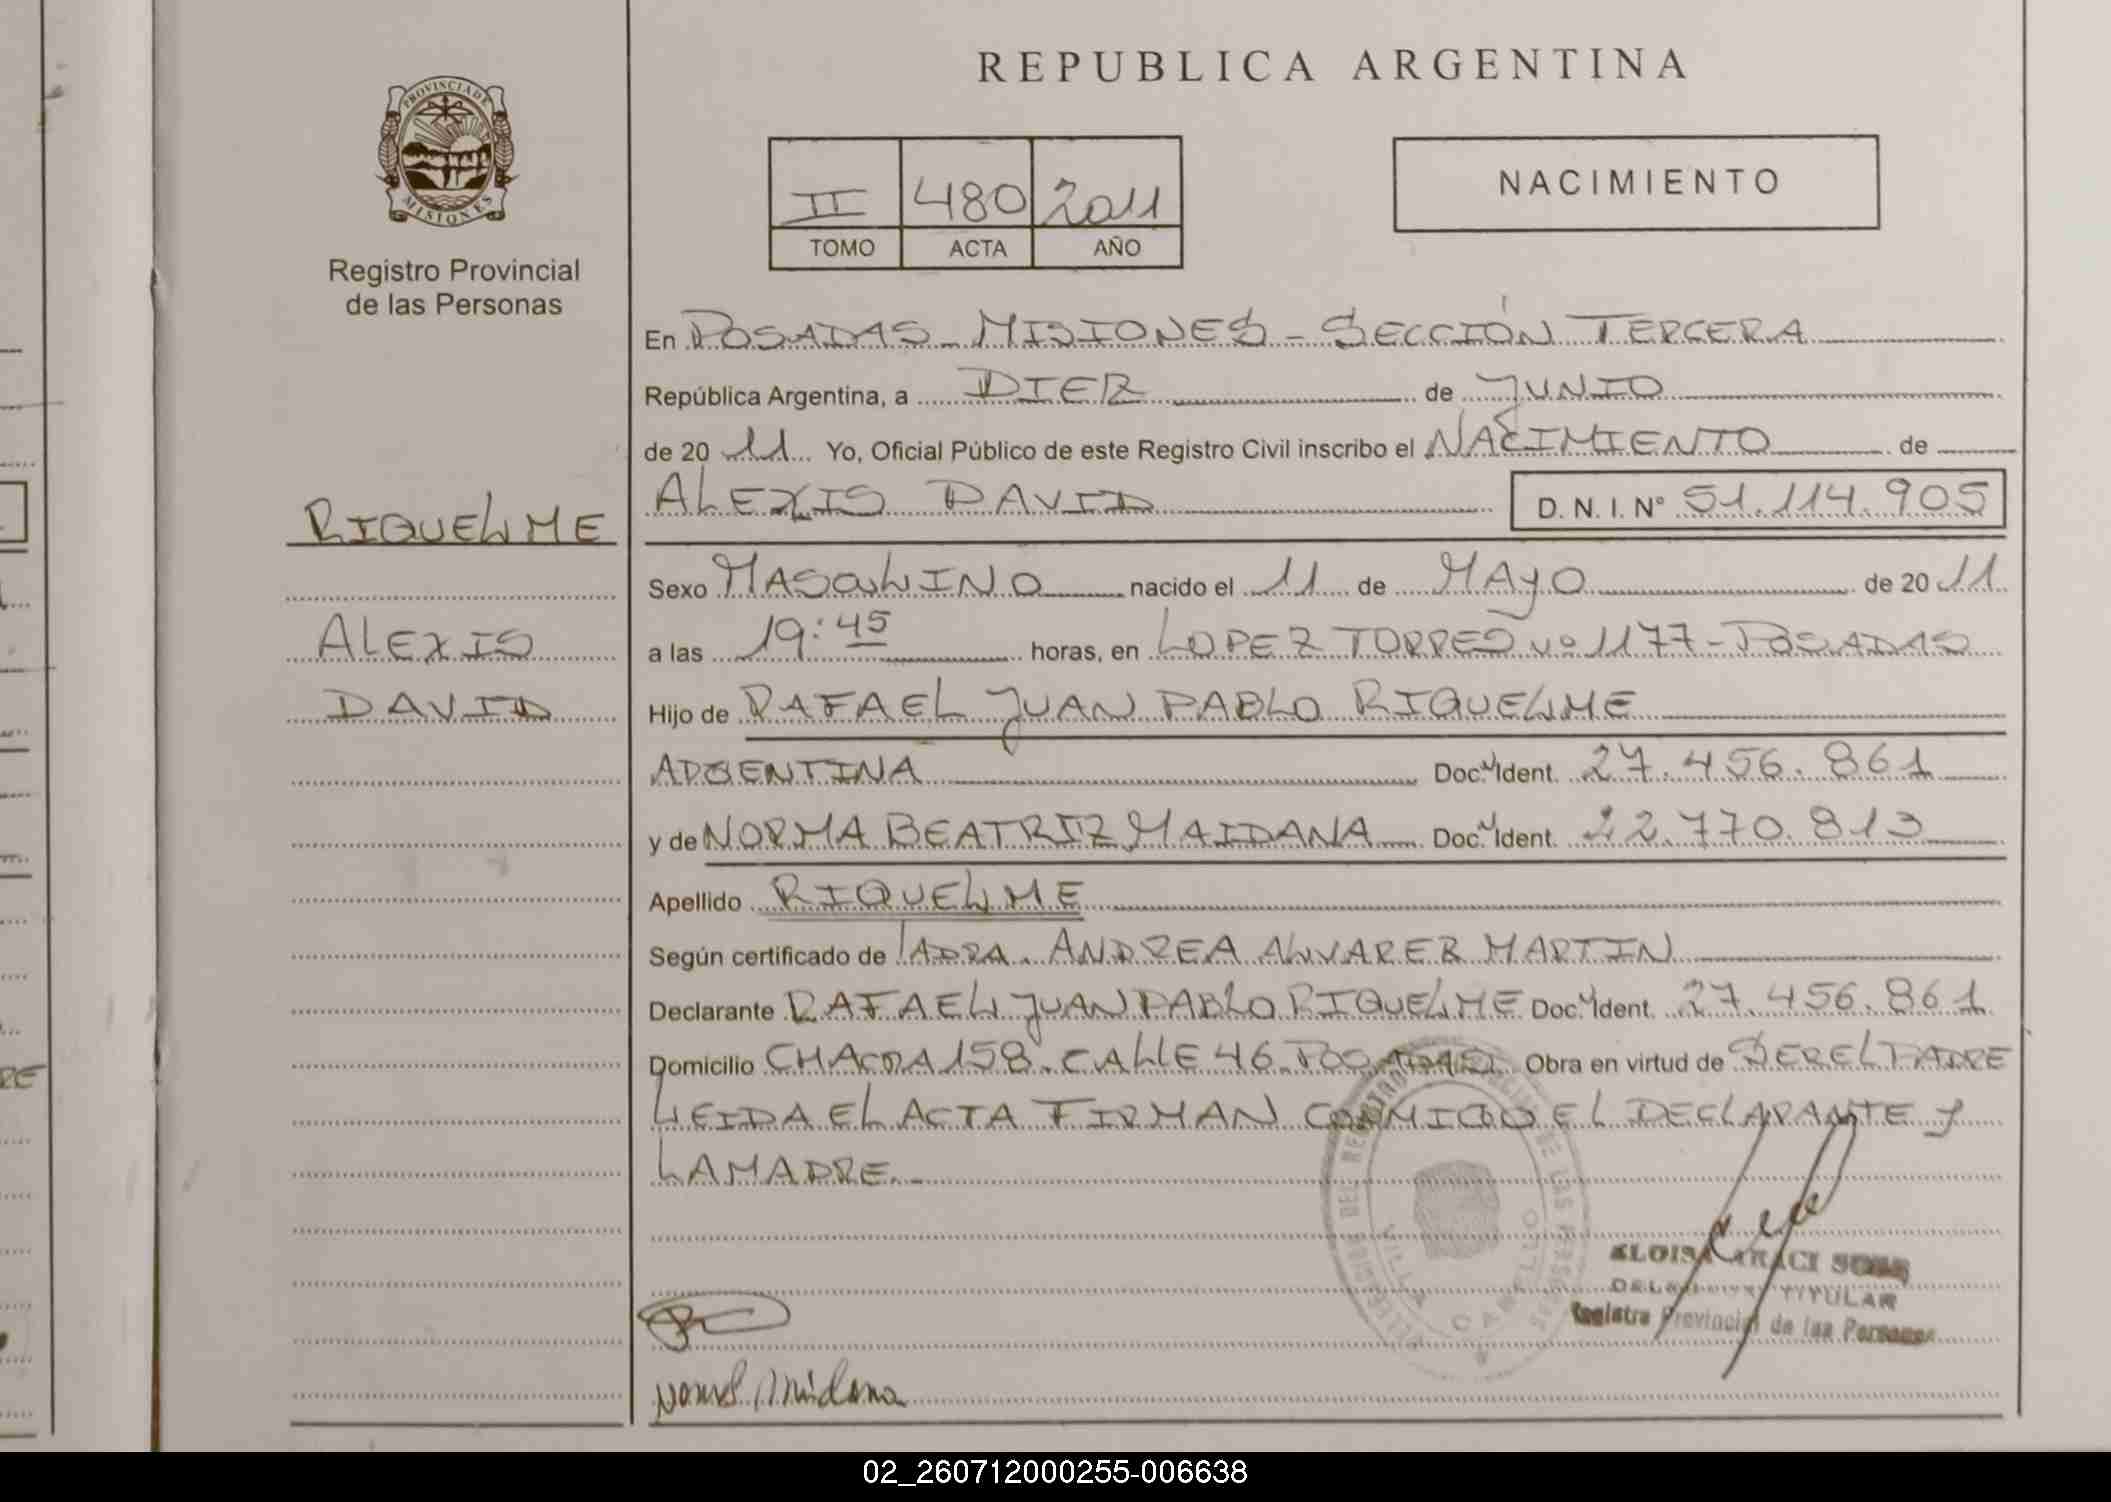 REPUBLICA ARGENTINA
PROVINCIA DE
MISIONES
Registro Provincial
de las Personas
II 480 2011
TOMO ACTA AÑO
NACIMIENTO
En POSADAS - MISIONES - SECCIÓN TERCERA
República Argentina, a DIEZ de JUNIO
de 20 11 Yo, Oficial Público de este Registro Civil inscribo el NACIMIENTO de
ALEXIS DAVID D. N. I. Nº 51.114.905
RIQUELME
ALEXIS
DAVID
Sexo MASCULINO nacido el 11 de MAYO de 20 11
a las 19:45 horas, en LOPEZ TORRES Nº 1177 - POSADAS
Hijo de RAFAEL JUAN PABLO RIQUELME
ARGENTINA Doc. Ident. 27.456.861
y de NORMA BEATRIZ MAIDANA Doc. Ident. 22.770.813
Apellido RIQUELME
Según certificado de LADRA. ANDREA ALVAREZ MARTIN
Declarante RAFAEL JUAN PABLO RIQUELME Doc. Ident. 27.456.861
Domicilio CHACRA 158. CALLE 46. POSADAS Obra en virtud de SER EL PADRE
LEIDA EL ACTA FIRMAN CONMIGO EL DECLARANTE Y
LA MADRE. -
VILLA CABELLO
TITULAR
Registro Provincial de las Personas
02_260712000255-006638